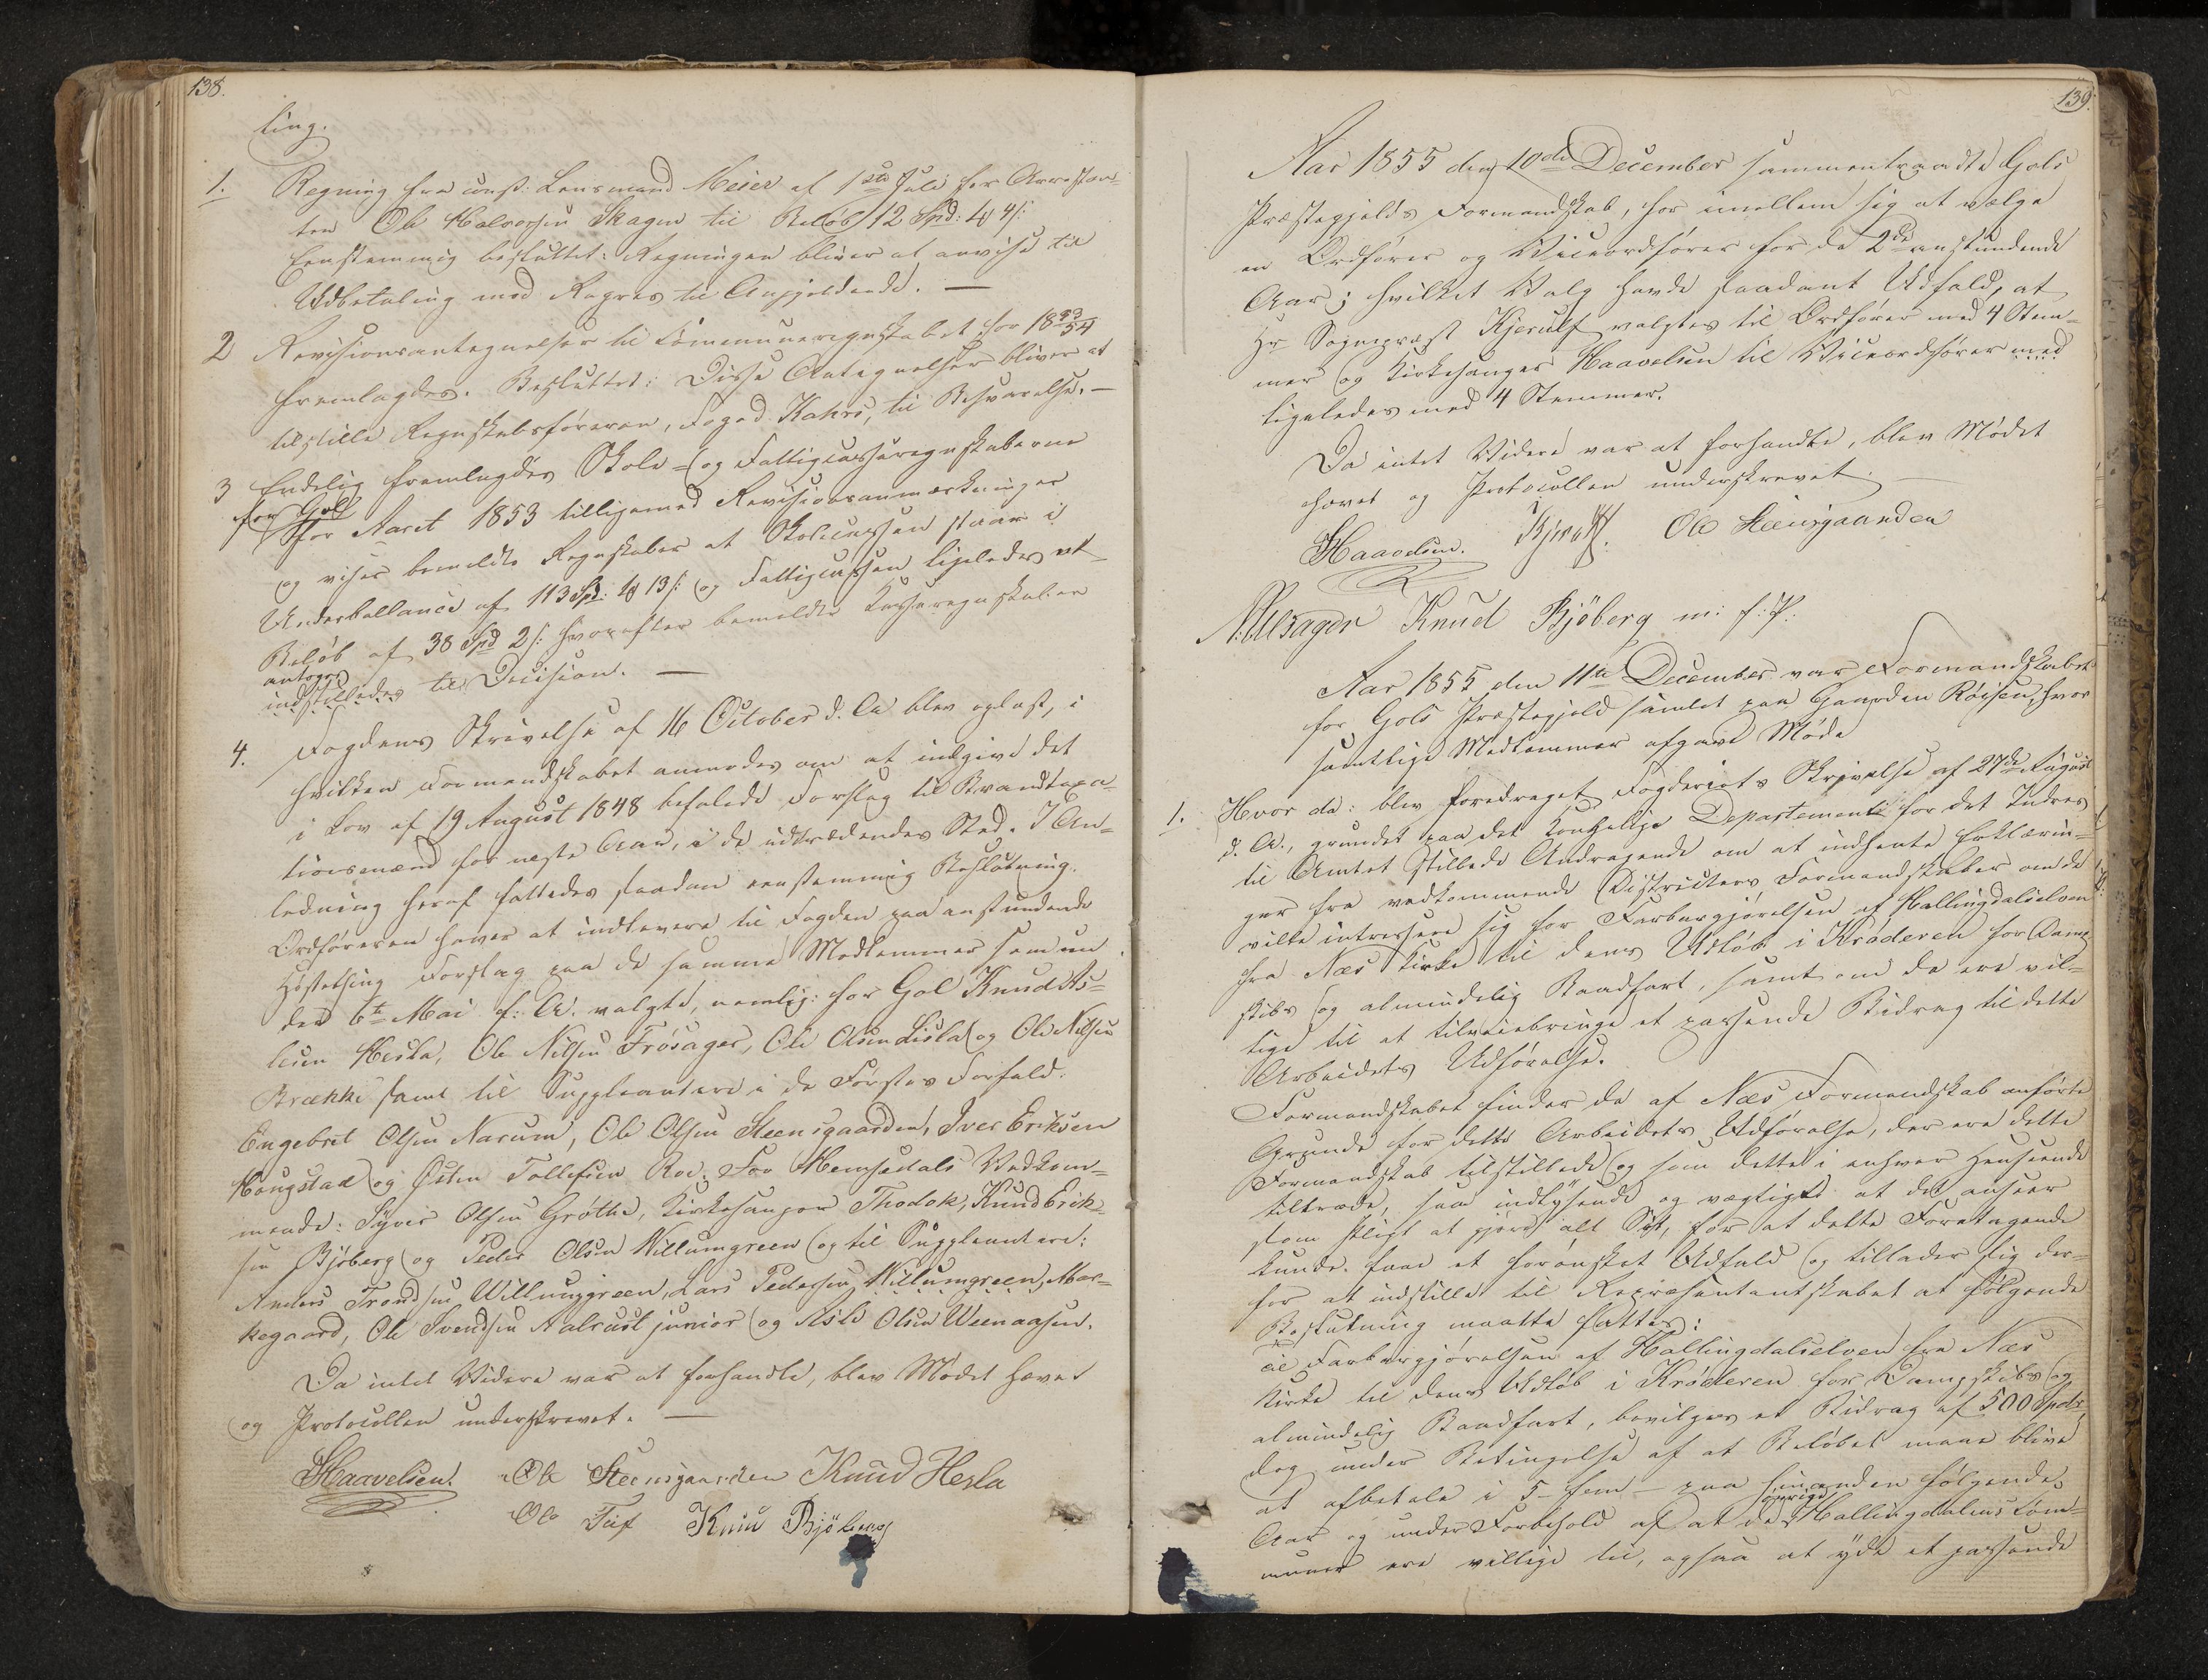 138.
ting.
1. Regning fra const: Lensmand Meier af 1ste Juli for Arrestan-
ten Ole Halvorsen Skagen til Beløb 12 Spd: 4 /:
Eenstemmig besluttet: Regningen bliver at anvise til
Udbetaling mod Regres til Angjeldende. —
2 Revisionsantegnelser til Communeregnskabet for 1853/54
fremlagdes. Besluttet: Disse Antegnelser bliver at
tilstille Regnskabsføreren, Foged Kahrs, til Besvarelse. —
3 Endelig fremlagdes Skole- og Fattigcasseregnskaberne
for Gol
for Aaret 1853 tilligemed Revisionsanmærkninger
og viser bemeldte Regnskaber at Skolecassen staar i
Underballance af 113 Spd: 13 /: og Fattigcassen ligeledes et
Beløb af 38 Spd 2 /: hvorefter bemeldte Casseregnskaber
antoges
indstilledes til Decision. —
4. Fogdens Skrivelse af 16 October d. A blev oplæst, i
hvilken Formandskabet anmodes om at indgive det
i Lov af 19 August 1848 befalede Forslag til Brandtaxa-
tionsmænd for neste Aar, i de udtrædendes Sted. I An-
ledning heraf fattedes saadan eenstemmig Beslutning.
Ordføreren haver at indlevere til Fogden paa anstundende
Høstething Forslag paa de samme Medlemmer som un-
der 6te Mai f: A. valgte, nemlig: for Gol Knud As-
lesen Hesla, Ole Nilsen Frøsager, Ole Olsen Lisla og Ole Nilsen
Brække samt til Suppleantere i de Førstes Forfald.
Engebret Olsen Narum, Ole Olsen Steensgaarden, Iver Eriksen
Hougstad og Østen Tollefsen Roe. For Hemsedals Vedkom-
mende: Syver Olsen Grøthe, Kirkesanger Thodok, Knud Erik-
sen Bjøberg og Peder Olsen Willumgreen og til Suppleantere:
Anders Trondsen Willumgreen, Lars Pedersen Willumgreen, Mar-
kegaard, Ole Svendsen Aalrust junior og Asle Olsen Ulsaasen.
Da intet Videre var at forhandle, blev Mødet hævet
og Protocollen underskrevet. —
Haavelsen. Ole Steensgaarden Knud Hesla
Ole Tuf Knud Bjøberg
139.
Aar 1855 den 10de December sammentraadte Gols
Præstegjelds Formandskab, for imellem sig at vælge
en Ordfører og Viceordfører for de 2de anstundende
Aar; hvilket Valg havde saadant Udfald, at
Hr Sogneprest Kjerulf valgtes til Ordfører med 4 Stem-
mer og Kirkesanger Haavelsen til Viceordfører med
ligeledes med 4 Stemmer.
Da intet Videre var at forhandle, blev Mødet
hævet og Protocollen underskrevet.
Haavelsen. Kjerulf. Ole Steensgaarden
Knud Bjöberg m: f: P.
Aar 1855 den 11te December var Formandskabet
for Gols Præstegjeld samlet paa Gaarden Røisen, hvor
samtlige Medlemmer afgave Møde
1. Hvor da: blev foredraget Fogderiets Skrivelse af 27de August
d. A., grundet paa det Kongelige Departement for det Indres
til Amtet stillede Andragende om at indhente Erklærin-
ger fra vedkommende Districters Formandskaber om de
ville intressere sig for Farbargjørelsen af Hallingdalselven
fra Næs Kirke til dens Udløb i Krøderen for Damp-
skibs og almindelig Baadfart, samt om de ere vil-
lige til at tilveiebringe et passende Bidrag til dette
Arbeidets Udførelse.
Formandskabet finder de af Næs Formandskab anførte
Grunde for dette Arbeidets Udførelse, der ere dette
Formandskab tilstillede og som dette i enhver Henseende
tiltræde, saa indlysende og vægtige at det anseer
som Pligt at gjøre alt Sit, for at dette Foretagende
kunde faae et forønsket Udfald og tillader sig der-
for at indstille til Representantskabet at følgende
Beslutning maatte fattes:
til Farbargjørelsen af Hallingdalselven fra Næs
Kirke til dens Udløb i Krøderen for Dampskibs og
almindelig Baadfart, bevilges et Bidrag af 500 Spdr
dog under Betingelse af at Beløbet maae blive
at afbetale i 5 - fem - paa hinanden følgende
Aar og under Forbehold af at de øvrige Hallingdalens Com-
muner ere villige til, ogsaa at yde et passende